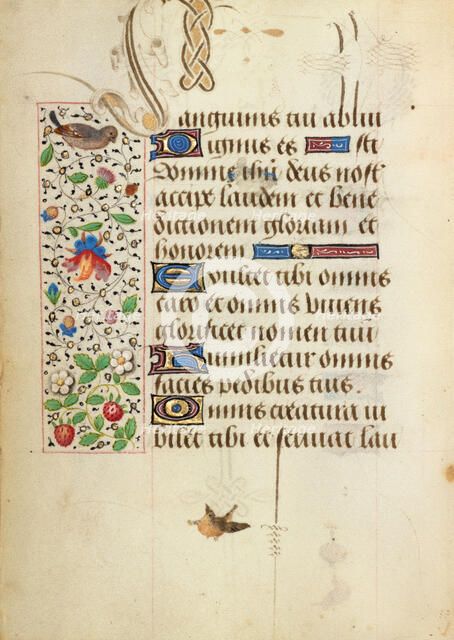 Sanguinis tui ablui
Dignus es
Domine ihu deus nost
accipe laudem et bene
dictionem gloriam et
honorem
Exultet tibi omnis
caro et omnis vivens
glorificet nomen tuu
Humilietur omnis
facies pedibus tuis.
Omnis creatura iu
bilet tibi et serviat lau